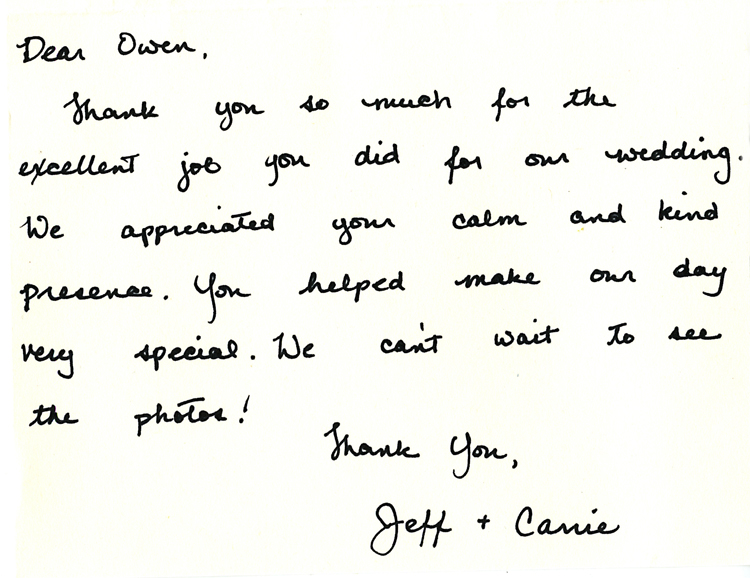 Dear Owen,
Thank you so much for the
excellent job you did for our wedding.
We appreciated your calm and kind
presence. You helped make our day
very special. We can't wait to see
the photos!
Thank You,
Jeff + Carrie